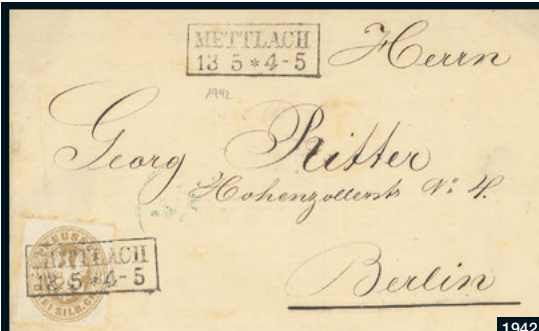 METTLACH
13 5 * 4-5
Herrn
1942
Georg Ritter
Hohenzollernstr No 4.
Berlin
METTLACH
13 5 * 4-5
DREI SILB.GR.
1942